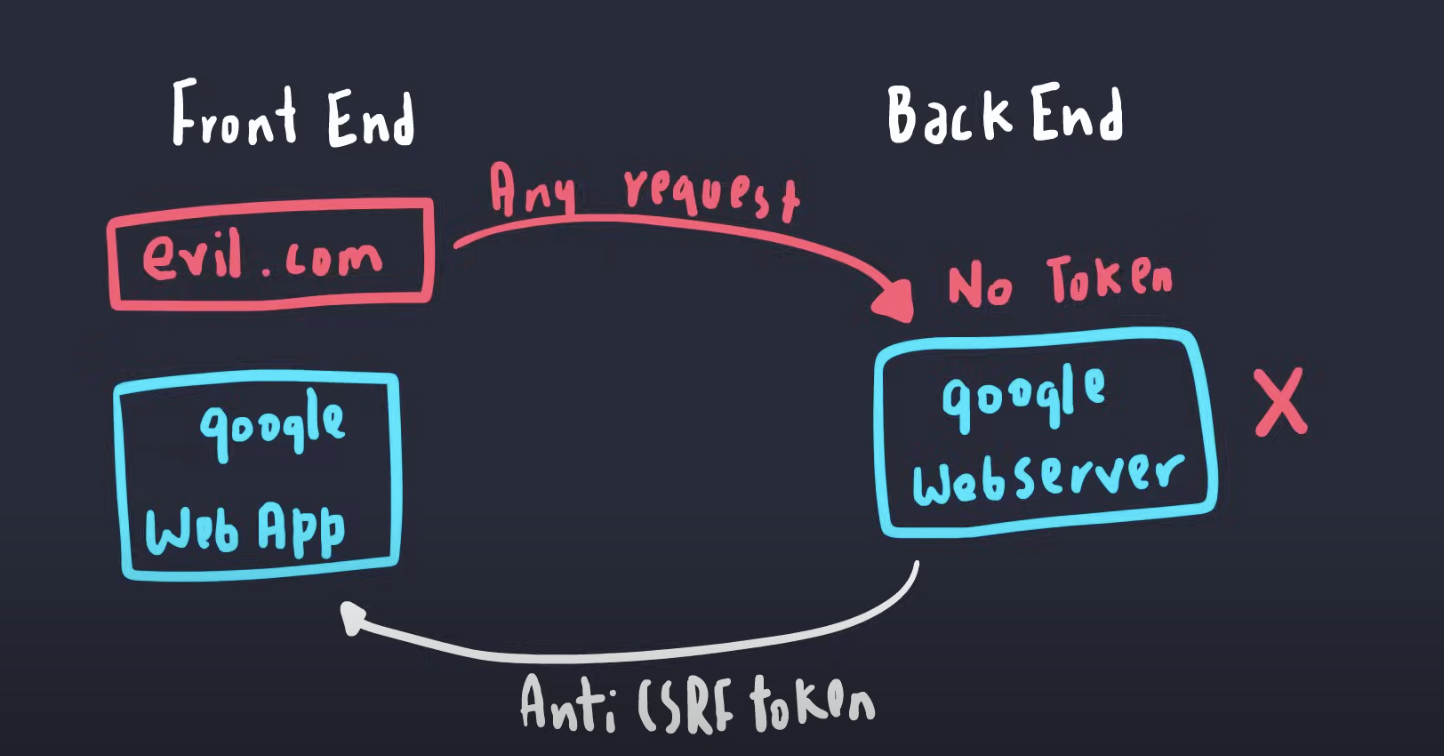 Front End
Back End
Any request
evil.com
No Token
google
Web App
google
Webserver
X
Anti CSRF token